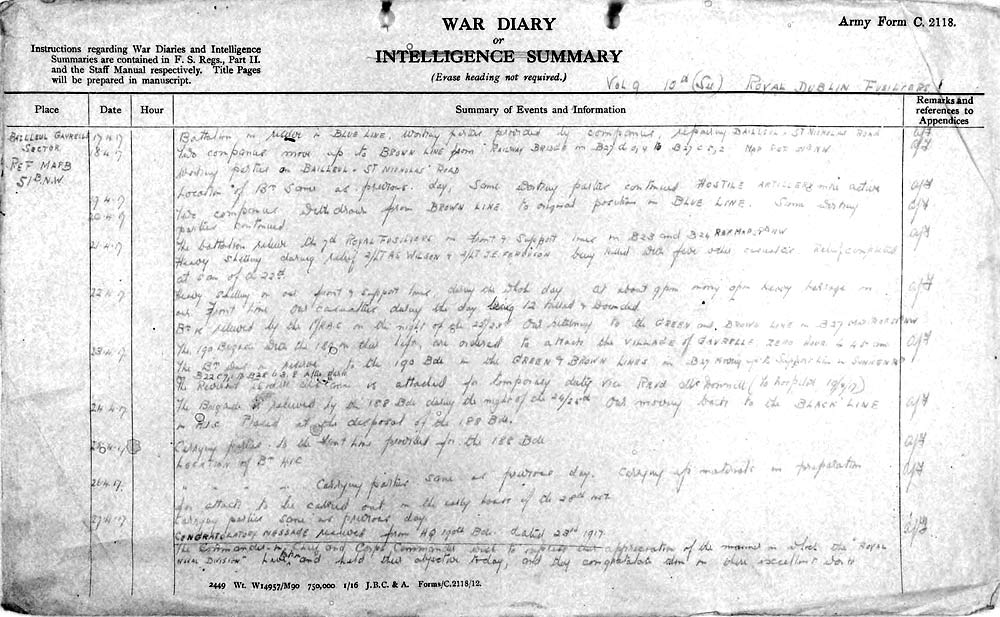 WAR DIARY
or
INTELLIGENCE SUMMARY
(Erase heading not required.)
Army Form C. 2118.
Instructions regarding War Diaries and Intelligence
Summaries are contained in F. S. Regs., Part II.
and the Staff Manual respectively. Title Pages
will be prepared in manuscript.
Vol 9 10th (Su) ROYAL DUBLIN FUSILIERS
Place Date Hour Summary of Events and Information Remarks and references to Appendices
BAILLEUL GAVRELLE 17.4.17 Battalion in BLUE LINE. Working parties provided by companies, repairing BAILLEUL - ST NICHOLAS ROAD
SECTOR 18.4.17 Two companies move up to BROWN LINE from RAILWAY BRIDGE in B27
REF MAP B Working parties on BAILLEUL - ST NICHOLAS ROAD
51B N.W Location of Bn same as previous day, same working parties continued HOSTILE ARTILLERY more active
19.4.17
20.4.17 Two companies withdrawn from BROWN LINE to original position in BLUE LINE. Same working
parties continued
21.4.17 The battalion relieve the 7th ROYAL FUSILIERS in front & support lines in B23 and B24 REF MAP 51B NW
Heavy shelling during relief 2/LT A.G. WILSON & 2/LT J.E. FERGUSON being killed with five other casualties. Relief completed
at 5 am of the 22nd
22.4.17 Heavy shelling on our front & support lines during the whole day at about 9pm heavy barrage on
our front line. Our casualties during the day being 12 killed & wounded
Bn is relieved by the on the night of the Our returning to the GREEN and BROWN LINE in B27
23.4.17 The 190 Brigade with the 189 on their left, are ordered to attack the VILLAGE of GAVRELLE ZERO HOUR 4.45 am
The Bn in reserve to the 190 Bde in the GREEN & BROWN LINES in B27
The Reverend is attached for temporary duty vice Revd (to hospital 19/4/17)
24.4.17 The Brigade is relieved by the 188 Bde during the night of the 24/25th Our moving back to the BLACK LINE
in H.1.C Placed at the disposal of the 188 Bde.
25.4.17 Carrying parties to the front line provided for the 188 Bde
LOCATION of Bn H1C
26.4.17. " " " " Carrying parties same as previous day. Carrying up materials in preparation
for attack to be carried out in the early hours of the 28th inst
27.4.17 Carrying parties same as previous day
CONGRATULATORY MESSAGE received from HQ 190th Bde dated 23rd 1917
The Commander-in-Chief and Corps Commander wish to express their appreciation of the manner in which the "ROYAL
NAVAL DIVISION" have taken and held their objective today, and they congratulate them on their excellent work
2449 Wt. W14957/M90 750,000 1/16 J.B.C. & A. Forms/C.2118/12.